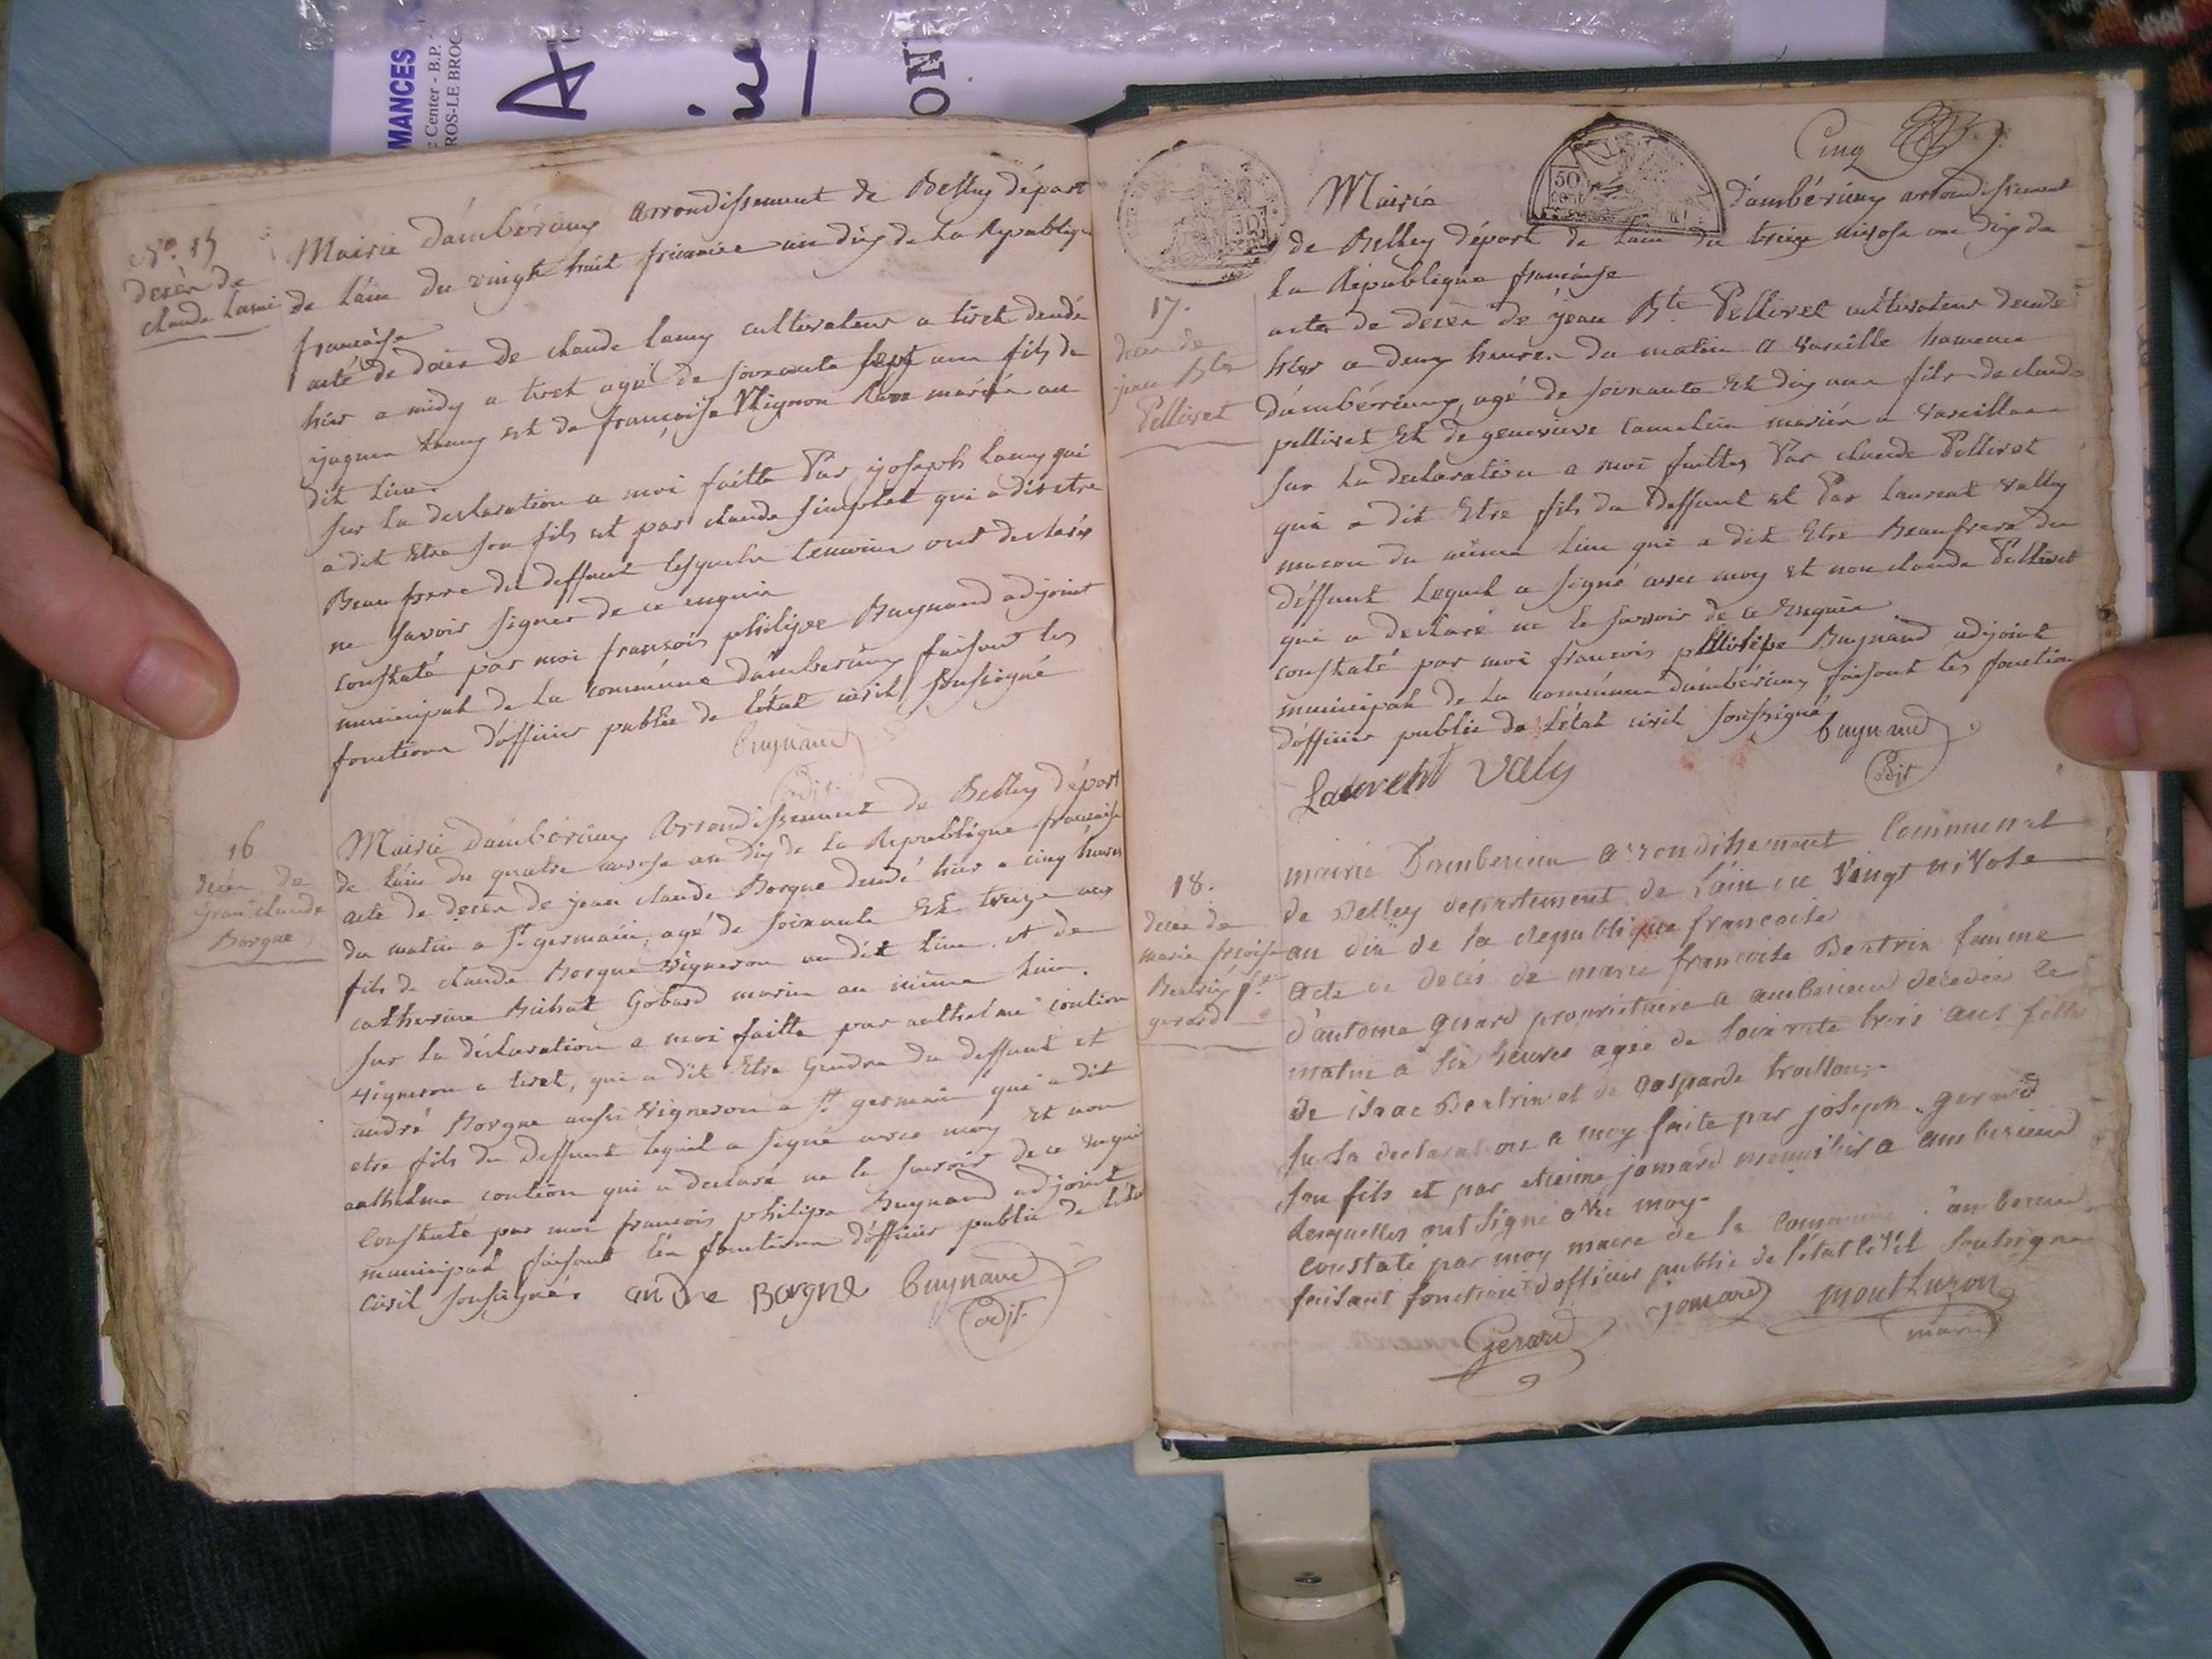 MANCES
Center - B.P.
ROS-LE BROC
ON
N.o 15
Décèn de
claude Lami
Mairie d'ambérieuy arrondissement de Belley départ
de Lain du vingt huit frimaire an dix de La Republiq
francaise
acte de décèn de claude Lamy cultivateur a tiret décédé
hier a midy a tiret agé de soixante sept ans fils de
jaques Lamy et de françoise Mignon mariée au
dit Lieu
sur la declaration a moi faitte Par joseph Lamy qui
a dit Etre son fils et par claude qui a dit etre
Beau frere du deffunt lesquels temoins ont declarés
ne savoir signer de ce enquis
constaté par moi fransois philipe Buynand adjoint
municipal de La commune d'amberieuy faisant les
fonctions d'officier public de l'état civil soussigné
buynand
adjt.
16
décèn de
jean claude
Borgne
Mairie d'ambérieuy Arrondissement de Belley départ
de Lain du quatre nivose an dix de la Republique francaise
acte de decen de jean claude Borgne décédé hier a cinq heures
du matin a St. germain, agé de soixante Et treize ans
fils de claude Borgne Vigneron au dit Lieu et de
catherine Gobard marien au même Lieu.
sur la déclaration a moi faitte par anthelme coution
vigneron a tiret, qui a dit Etre Gendre du deffunt et
andré Borgne aussi Vigneron a St. germain qui a dit
etre fils du Deffunt lequel a signé avec moy et non
anthelme coution qui a declaré ne le savoir de ce enquis
Constaté par moi francois philipe Buynand adjoint
municipal faisant lés fonctions d'officier public de l'état
civil soussigné. andre Borgne buynand
adjt.
Cinq
50
Mairie d'ambérieuy arrondissement
de Belley départ de Lain du treize nivose an dix de
La Republique française
17.
décèn de
jean Bte
Pellivet
acte de decèn de jean Bte Pellivet cultivateur décédé
hier a deux heures du matin a Vareille hameau
d'ambérieuy, agé de soixante Et dix ans fils de claude
pellivet Et de genevieve marién a Vareille
sur La declaration a moi faitte Par claude Pellivet
qui a dit Etre fils du Deffunt et Par Laurent Vally
macon du même Lieu qui a dit Etre Beaufrere du
déffunt Lequel a signé avec moy et non claude Pellivet
qui a declaré ne le savoir de ce Enquis
constaté par moi francois philipe Buynand adjoint
municipal de La commune d'ambérieuy faisant les fonction
d'officier public de L'état civil soussigné, buynand
Laurent Vally adjt
18.
décèn de
marie fcoise
Bertrin fe
gerard
mairie Damberieu arrondissement Communal
de Belley departement de Lain du Vingt nivose
an dix de la republique francaise
acte de decés de marie francoise Bertrin femme
d'antoine Gerard proprietaire a amberieu decedée le
matin a six heures agée de soixante trois ans fille
de isaac Bertrin et de Gasparde
sur la declaration a moy faite par joseph gerard
son fils et par etienne jomard menuisier a amberieu
lesquelles ont signé avec moy.
constaté par moy maire de la Commune amberieu
faisant fonctions d'officier public de l'état Civil Soussigné
Gerard jomard montluzon
maire